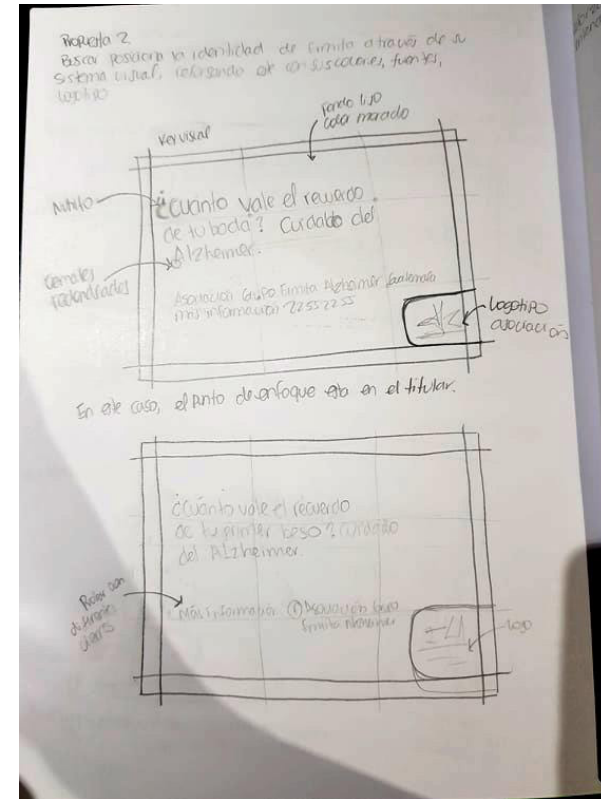 Propuesta 2
Buscar posicionar la identidad de Ermita a través de su
sistema visual, reforzando con sus colores, fuentes,
logotipo
Key visual
fondo liso
color morado
Nunito
¿Cuánto vale el recuerdo
de tu boda? Cuidado del
Alzheimer.
remates
redondeados
Asociación Grupo Ermita Alzheimer Guatemala
más información 2255 2255
Logotipo
asociación
En este caso, el punto de enfoque esta en el titular.
¿Cuánto vale el recuerdo
de tu primer beso? Cuidado
del Alzheimer
diferentes
Más información Asociación Grupo
Ermita Alzheimer
Logo